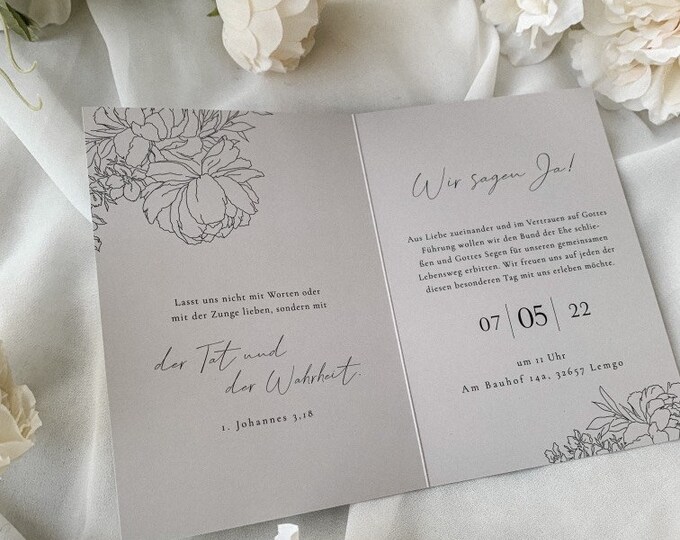 Lasst uns nicht mit Worten oder
mit der Zunge lieben, sondern mit
der Tat und
der Wahrheit.
1. Johannes 3,18
Wir sagen Ja!
Aus Liebe zueinander und im Vertrauen auf Gottes
Führung wollen wir den Bund der Ehe schlie-
ßen und Gottes Segen für unseren gemeinsamen
Lebensweg erbitten. Wir freuen uns auf jeden der
diesen besonderen Tag mit uns erleben möchte.
07 | 05 | 22
um 11 Uhr
Am Bauhof 14a, 32657 Lemgo